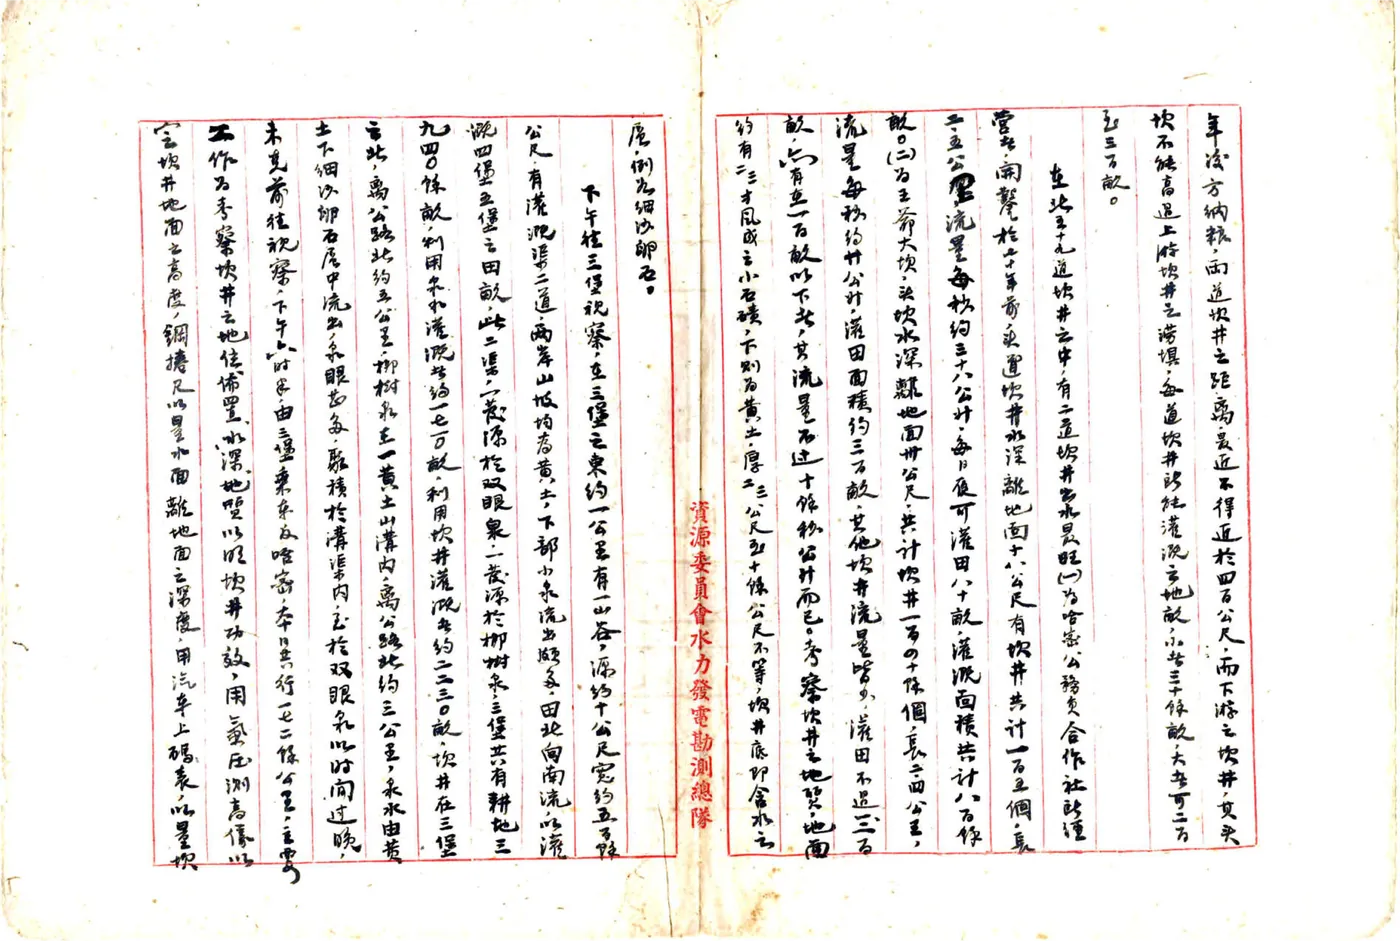 年後方納糧，兩道坎井之距離，最近不得近於四百公尺，而下游之坎井，其头
坎不能高過上游坎井之澇壩，每道坎井所能灌溉之地畝，小者三十餘畝，大者可二百
至三百畝。
在此五十九道坎井之中，有二道坎井出水最旺(一)為哈密公務員合作社所經
營者，開鑿於七十年前，头道坎井水深離地面十八公尺有坎井共計一百五個，長
二・五公里，流量每秒約三十八公升，每日夜可灌田八十畝，灌溉面積共計八百餘
畝。(二)為王爺大坎，头坎水深離地面卅公尺，共計坎井一百四十餘個，長二・四公里，
流量每秒約廿公升，灌田面積約三百畝，其他坎井流量皆少，灌田不過二三百
畝，亦有在一百畝以下者，其流量不过十餘秒公升而已。考察坎井之地質，地面
約有二三寸風成之小石磧，下則為黄土，厚二三公尺至十餘公尺不等，坎井底即含水之
層，例为細沙卵石。
下午往三堡視察，在三堡之東約一公里有一山谷，深約十公尺寬約五百餘
公尺，有灌溉渠二道，兩岸山坡均為黄土，下部小泉流出頗多，由北向南流，以灌
溉四堡五堡之田畝，此二渠，一發源於双眼泉，一發源於柳樹泉，三堡共有耕地三
九四〇餘畝，利用泉水灌溉者約一七一〇畝，利用坎井灌溉者約二二三〇畝，坎井在三堡
之北，离公路北約五公里，柳樹泉在一黄土山溝內，离公路北約三公里，泉水由黄
土下細沙卵石层中流出，泉眼甚多，聚積於溝渠內，至於双眼泉以时间过晚，
未克前往視察，下午六时半，由三堡乘車返哈密，本日共行一七二餘公里，主要
工作为考察坎井之地位佈置，水深，地質以明坎井功效，用氣压測高儀以
定坎井地面之高度，鋼捲尺以量水面離地面之深度，用汽车上碼表，以量坎
資源委員會水力發電勘測總隊